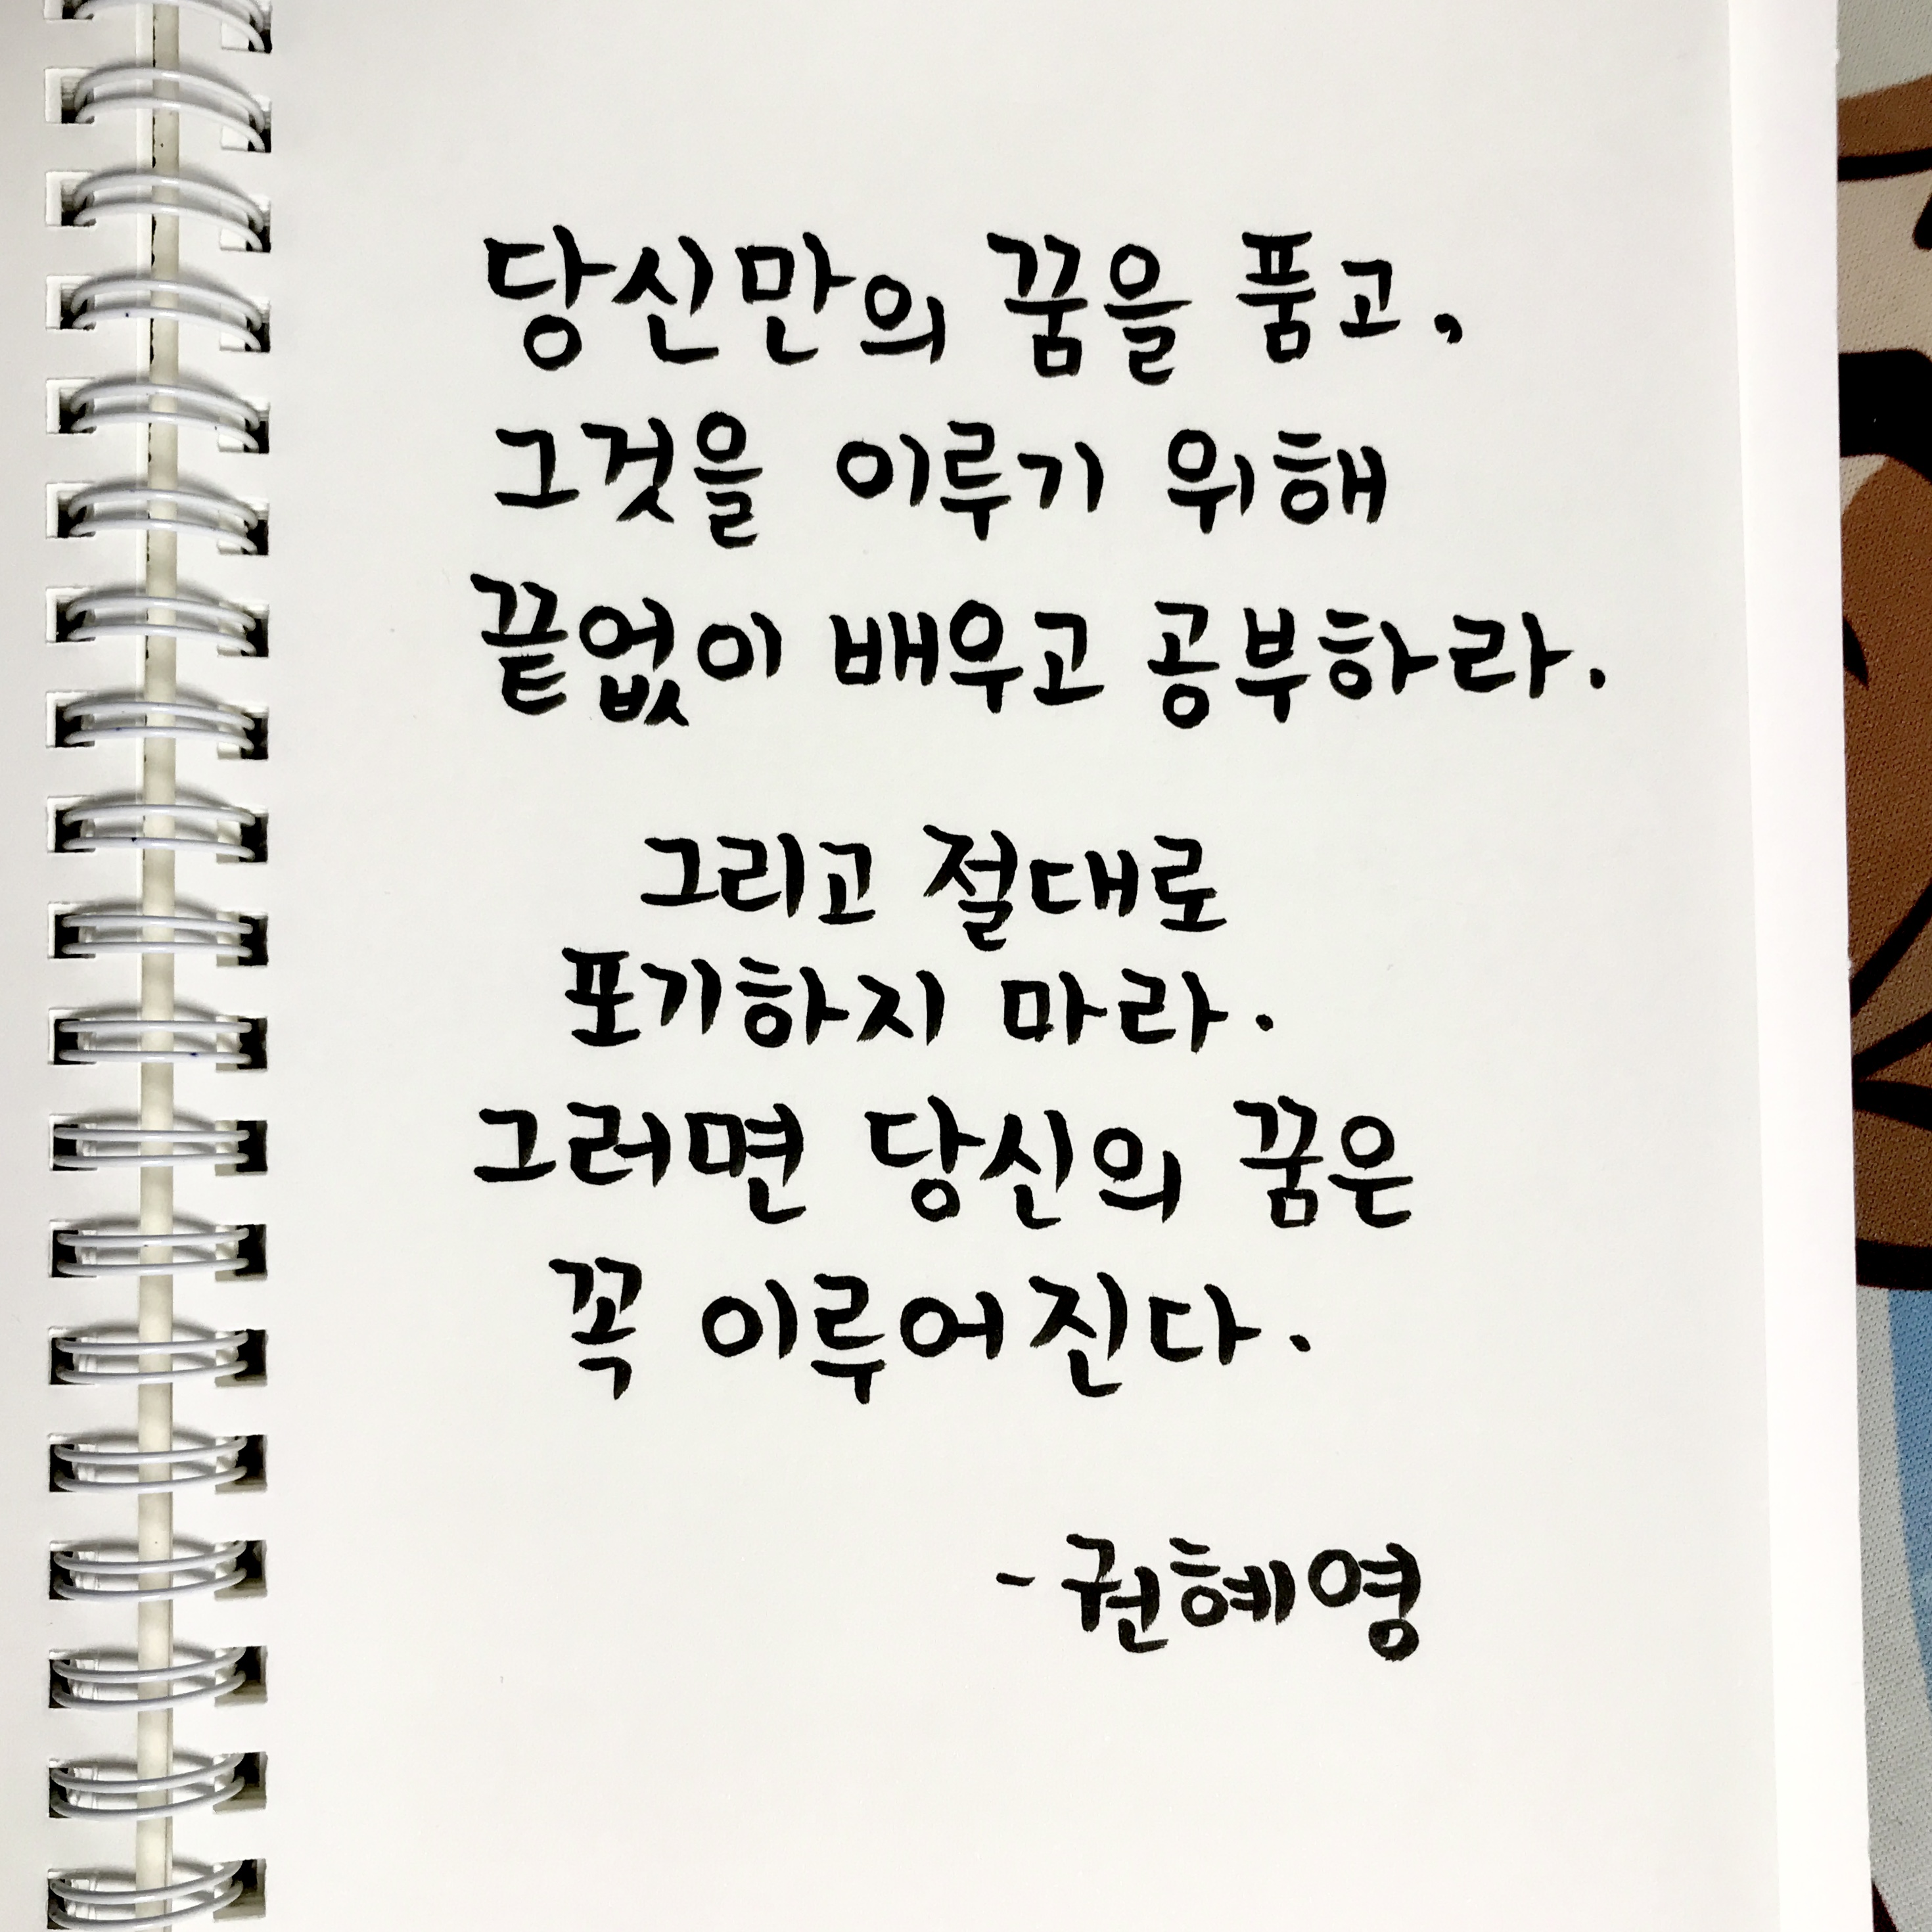 당신만의 꿈을 품고,
그것을 이루기 위해
끝없이 배우고 공부하라.
그리고 절대로
포기하지 마라.
그러면 당신의 꿈은
꼭 이루어진다.
-권혜영